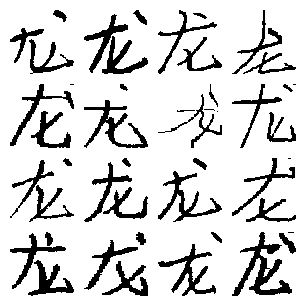 龙龙龙龙
龙龙龙龙
龙龙龙龙
龙龙龙龙